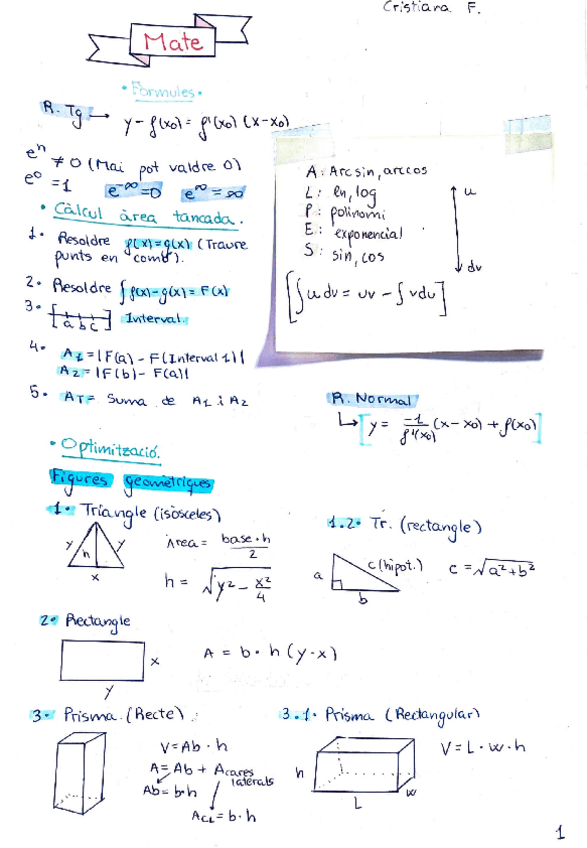 Cristiana F.
Mate
• Formules •
R. Tg → y - f(x0) = f'(x0) (x-x0)
e^n ≠ 0 (Mai pot valdre 0)
e^0 = 1   e^-∞ = 0   e^∞ = ∞
• Càlcul àrea tancada.
1• Resoldre f(x) = g(x) (Traure
punts en comú).
2• Resoldre ∫ f(x) - g(x) = F(x)
3• [a b c] Interval.
4•
A1 = |F(a) - F(Interval 1)|
A2 = |F(b) - F(a)|
5• AT = Suma de A1 i A2
A: Arcsin, arccos
L: ln, log
P: polinomi
E: exponencial
S: sin, cos
u
dv
[∫ u dv = uv - ∫ v du]
R. Normal
↳ [y = -1/f'(x0) (x - x0) + f(x0)]
• Optimització.
Figures geomètriques
1• Triangle (isòsceles)
y h y
x
Àrea = base • h / 2
h = √(y² - x²/4)
1.2• Tr. (rectangle)
a
c (hipot.)
b
c = √(a² + b²)
2• Rectangle
x
y
A = b • h (y • x)
3• Prisma (Recte)
V = Ab • h
A = Ab + A cares laterals
Ab = b • h
ACL = b • h
3.1• Prisma (Rectangular)
h
L
w
V = L • w • h
1